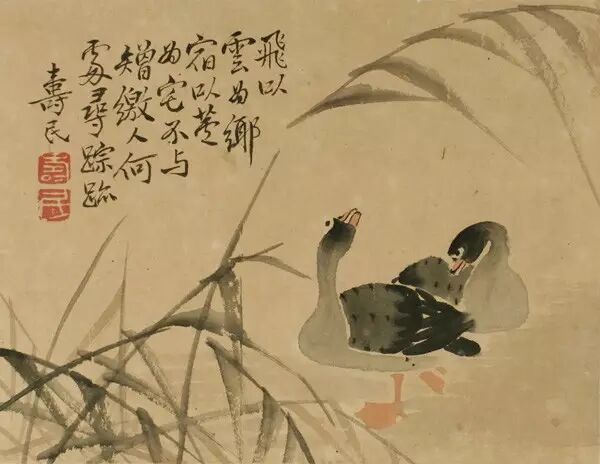 飛以
雲為鄉
宿以蘆
為宅不与
矰繳人何
處尋踪跡
壽民
壽
民